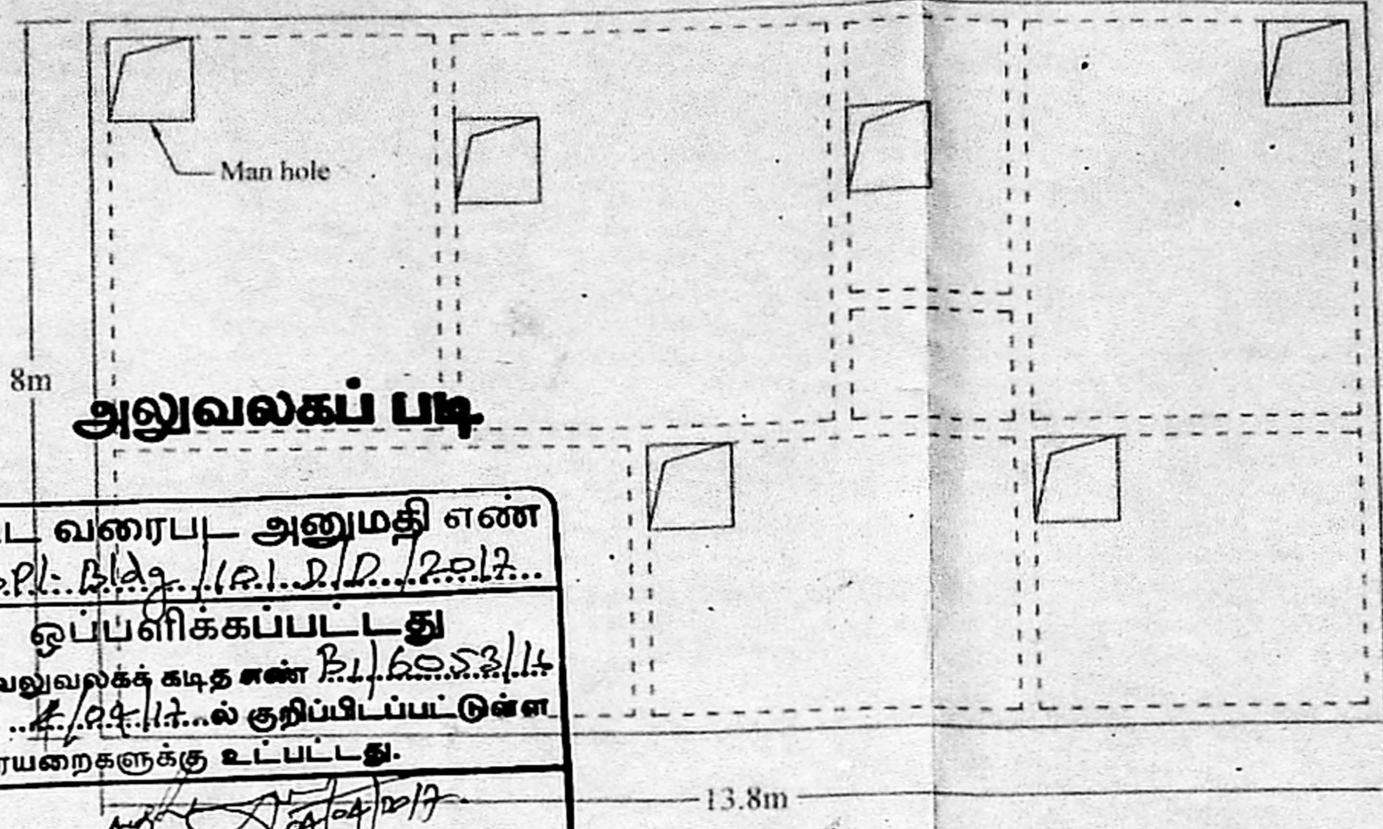 Man hole
8m
அலுவலகப் படி
வரைபட அனுமதி எண்
Bldg /101 D/D /2017
ஒப்பளிக்கப்பட்டது
கடித எண் B1/6053/1
/04/17 ல் குறிப்பிடப்பட்டுள்ள
உட்பட்டது.
04/04/2017
13.8m